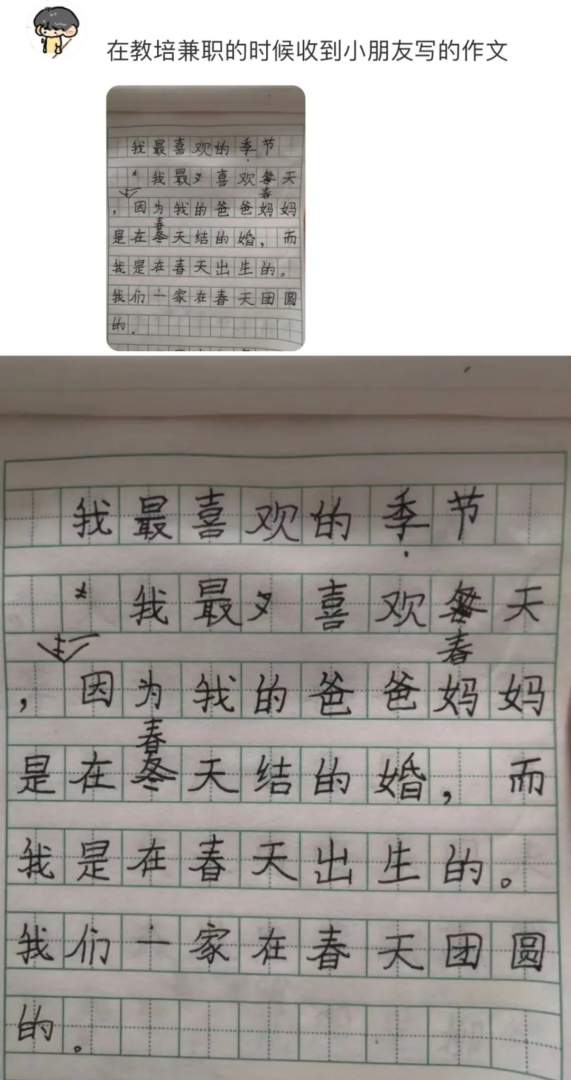 在教培兼职的时候收到小朋友写的作文
我最喜欢的季节
我最喜欢春天
，因为我的爸爸妈妈
是在春天结的婚，而
我是在春天出生的。
我们一家在春天团圆
的。
我最喜欢的季节
我最喜欢冬天
春
，因为我的爸爸妈妈
春
是在冬天结的婚，而
我是在春天出生的。
我们一家在春天团圆
的。